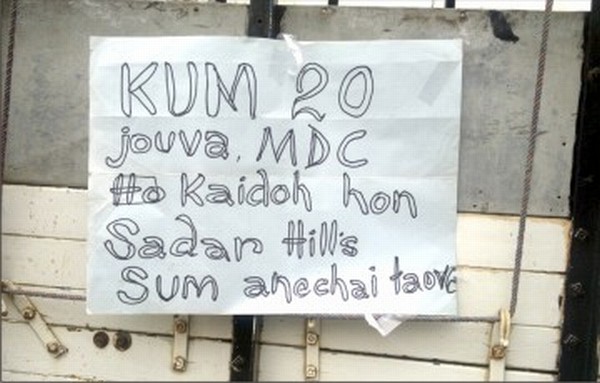 KUM 20
jouva, MDC
Ho Kaidoh hon
Sadar Hills
Sum anechai